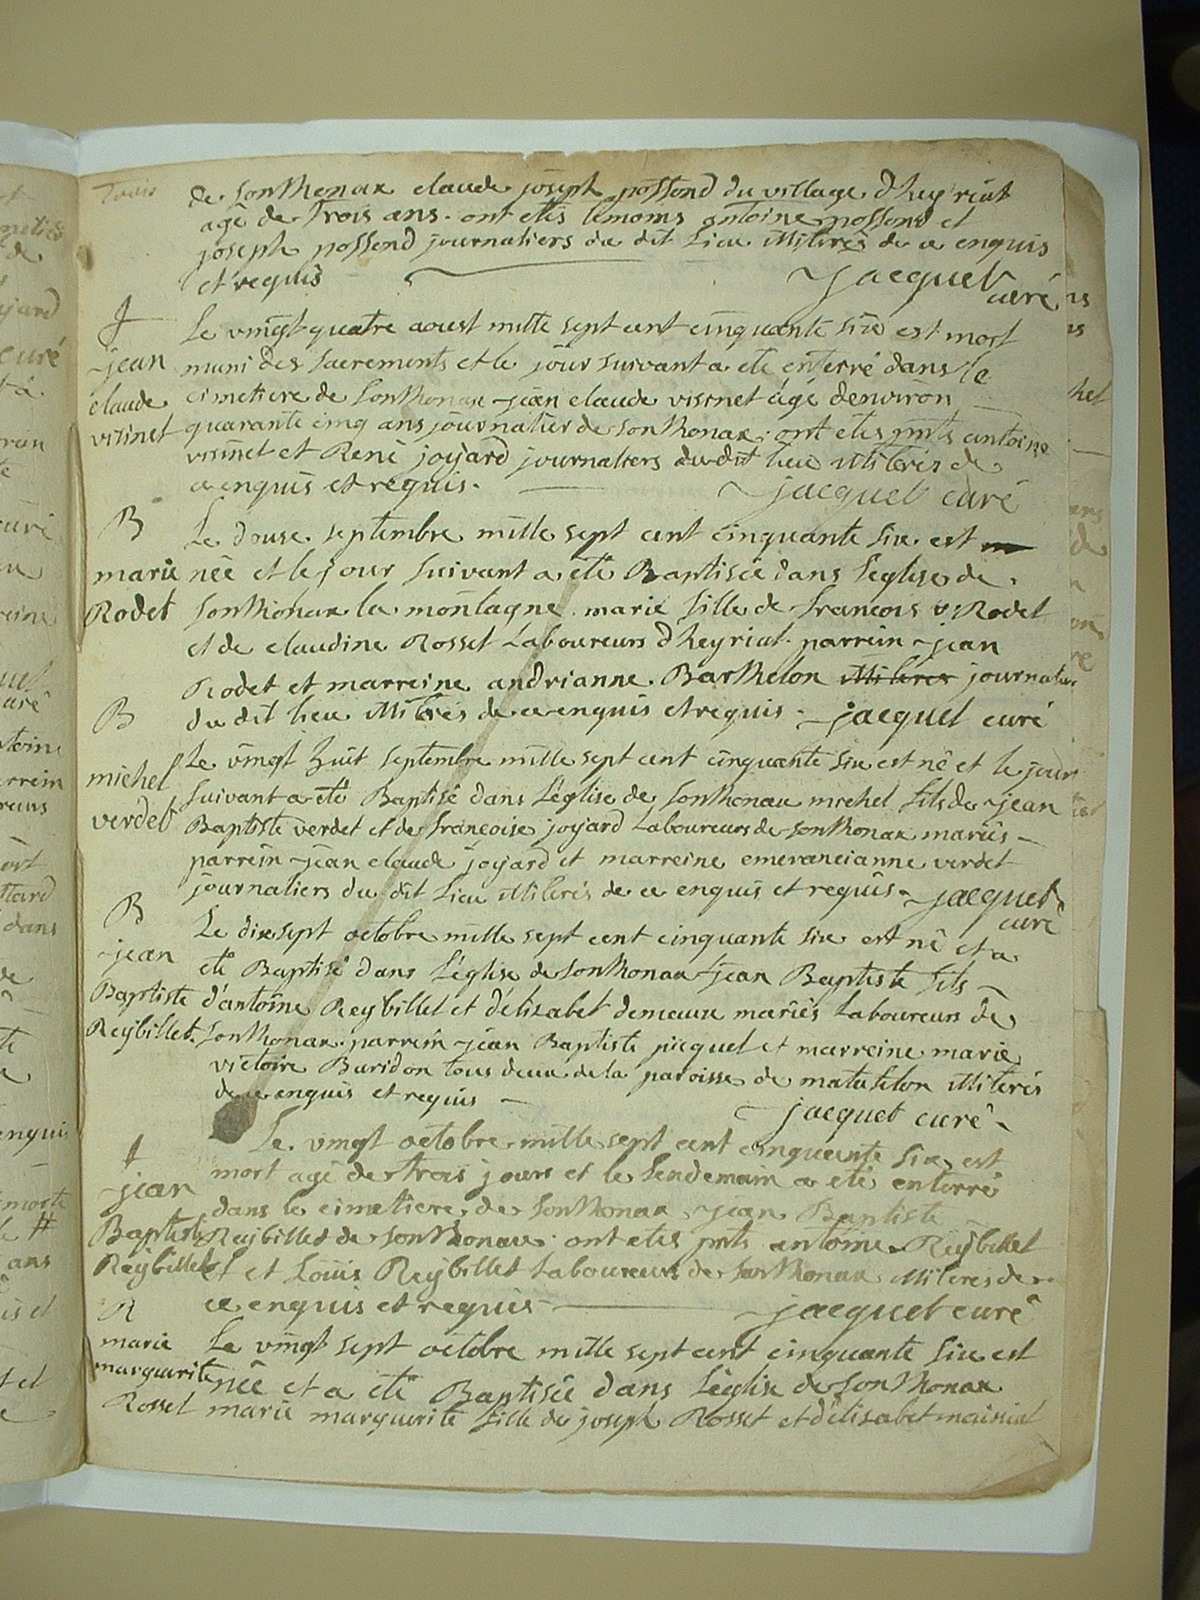 trois
de sonthonax claude joseph possend du village d'heyriat
agé de trois ans. ont etés témoins antoine possend et
joseph possend journaliers du dit lieu illiterés de ce enquis
et requis
jacquet
curé
jean
claude
visinet
Le vingt-quatre aoust mille sept cent cinquante six est mort
muni des sacrements et le jour suivant a eté enterré dans le
cimetiere de sonthonax jean claude visinet agé denviron
quarante cinq ans journalier de sonthonax. ont etés pnts antoine
visinet et René joyard journaliers du dit lieu illiterés de
ce enquis et requis.
jacquet curé
B
marie
Rodet
Le douse septembre mille sept cent cinquante six est
née et le jour suivant a eté Baptisée dans l'eglise de
sonthonax la montagne marie fille de francois Rodet
et de claudine Rosset Laboureurs d'heyriat. parrein jean
Rodet et marreine andrianne Barthelon illiteres journaliers
du dit lieu illiterés de ce enquis et requis. jacquet curé
B
michel
verdet
Le vingt huit septembre mille sept cent cinquante six est né et le jour
suivant a eté Baptisé dans l'église de sonthonax michel fils de jean
Baptiste verdet et de francoise joyard Laboureurs de sonthonax mariés
parrein jean claude joyard et marreine emerancianne verdet
journaliers du dit lieu illiterés de ce enquis et requis. jacquet
curé
B
jean
Baptiste
Reijbillet.
Le dixsept octobre mille sept cent cinquante six est né et a
eté Baptisé dans l'église de sonthonax jean Baptiste fils
d'antoine Reybillet et d'élizabet demeure mariés Laboureurs de
sonthonax. parrein jean Baptiste picquet et marreine marie
victoire Buridon tous deux de la paroisse de matafelon illiterés
de ce enquis et requis
jacquet curé
jean
Baptiste
Reijbillet
Le vingt octobre mille sept cent cinquante six est
mort agé de trois jours et le lendemain a eté enterré
dans le cimetiere de sonthonax jean Baptiste
Reijbillet de sonthonax. ont etés pnts antoine Reijbillet
et Louis Reijbillet Laboureurs de sonthonax illiteres de
ce enquis et requis
jacquet curé
B
marie
marguerite
Rosset
Le vingt sept octobre mille sept cent cinquante six est
née et a eté Baptisée dans l'église de sonthonax
marie marguerite fille de joseph Rosset et d'élisabet